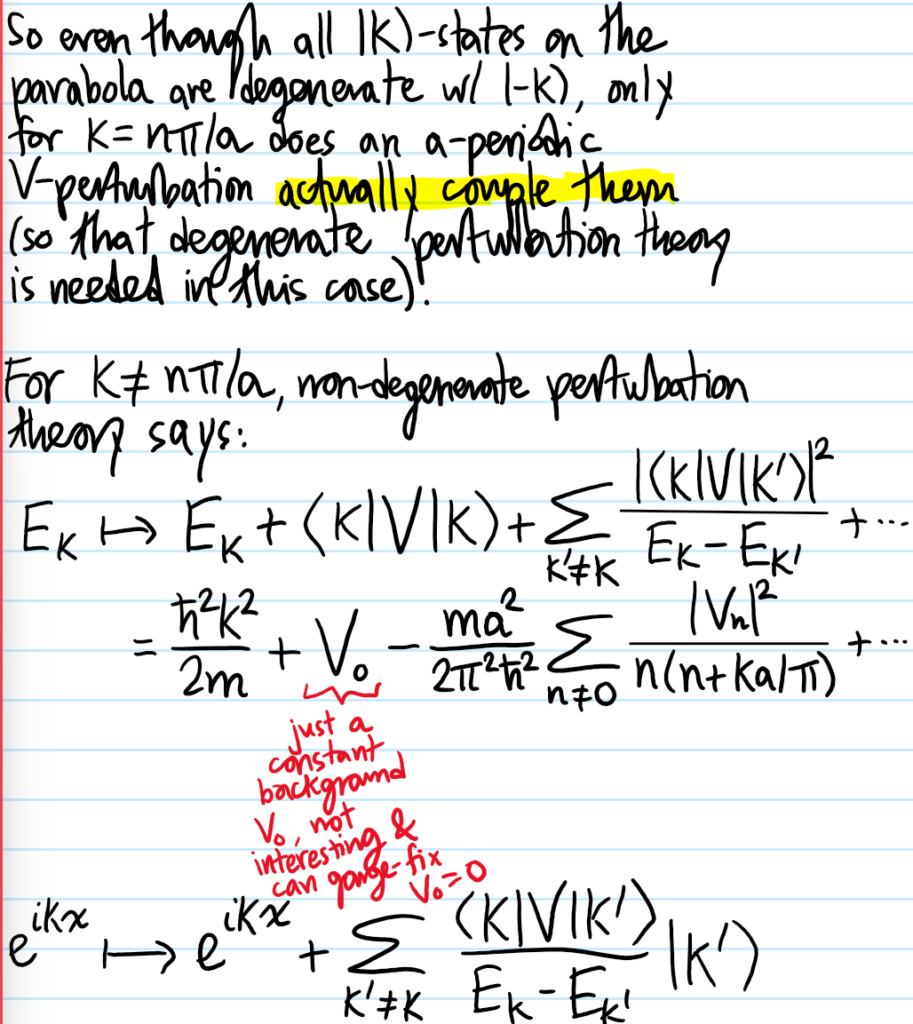 So even though all |k⟩-states on the
parabola are degenerate w/ |-k⟩, only
for k = nπ/a does an a-periodic
V-perturbation actually couple them
(so that degenerate perturbation theory
is needed in this case)!
For k ≠ nπ/a, non-degenerate perturbation
theory says:
E_k ↦ E_k + ⟨k|V|k⟩ + Σ_{k'≠k} |⟨k|V|k'⟩|² / (E_k − E_k') + ⋯
= ħ²k²/2m + V₀ − ma²/2π²ħ² Σ_{n≠0} |V_n|² / n(n+ka/π) + ⋯
just a
constant
background
V₀, not
interesting &
can gauge-fix
V₀=0
e^{ikx} ↦ e^{ikx} + Σ_{k'≠k} ⟨k|V|k'⟩ / (E_k − E_k') |k'⟩